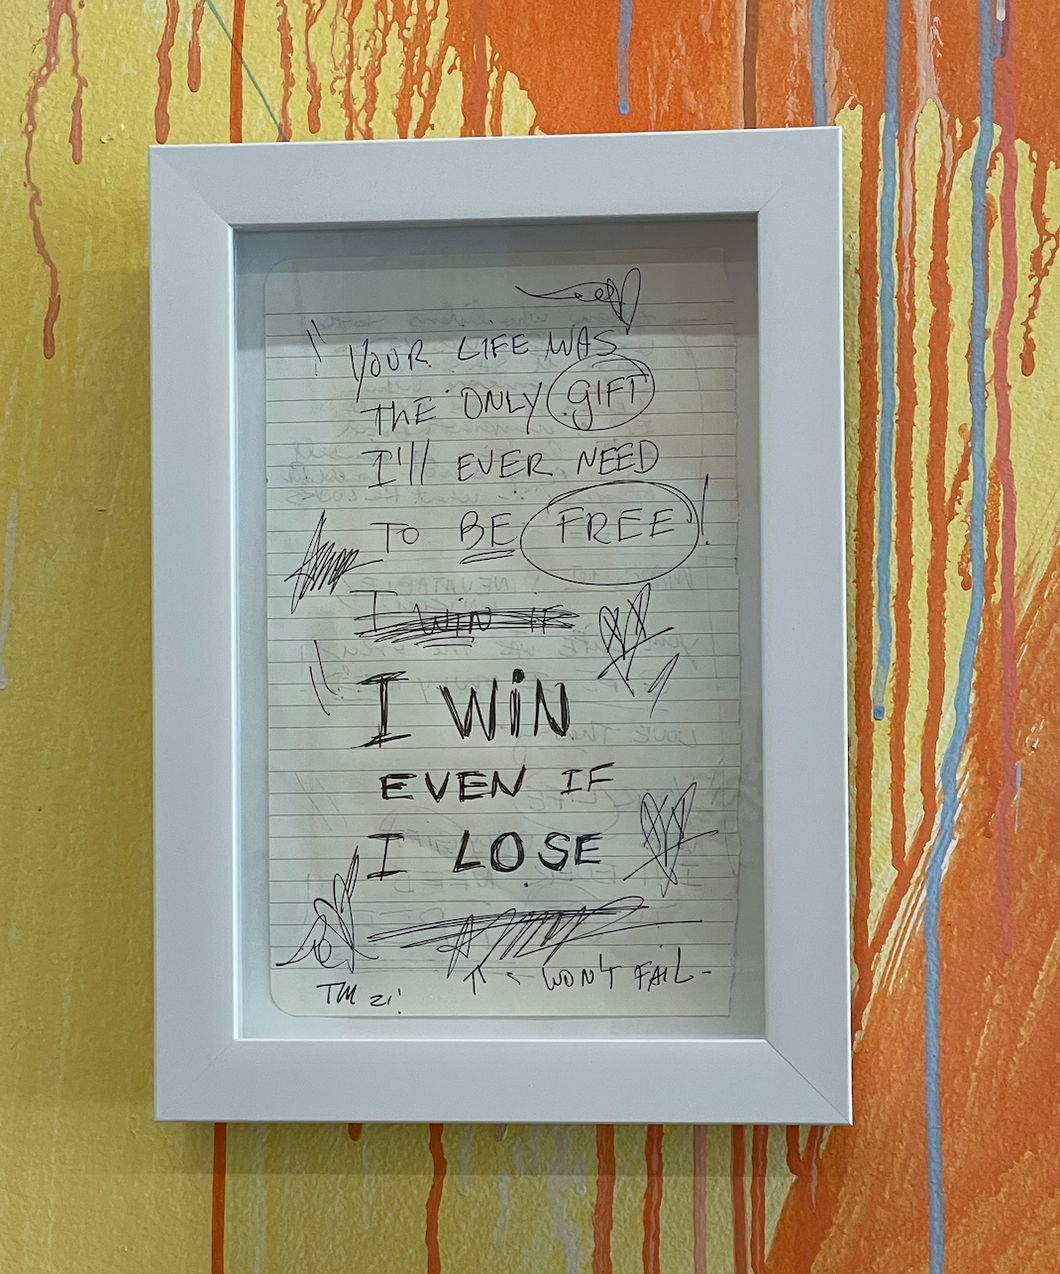 "YOUR LIFE WAS
THE ONLY GIFT
I'll EVER NEED
TO BE FREE!
I WiN if
"I WiN"
EVEN IF
I LOSE
WON'T FAIL-
TM 21'